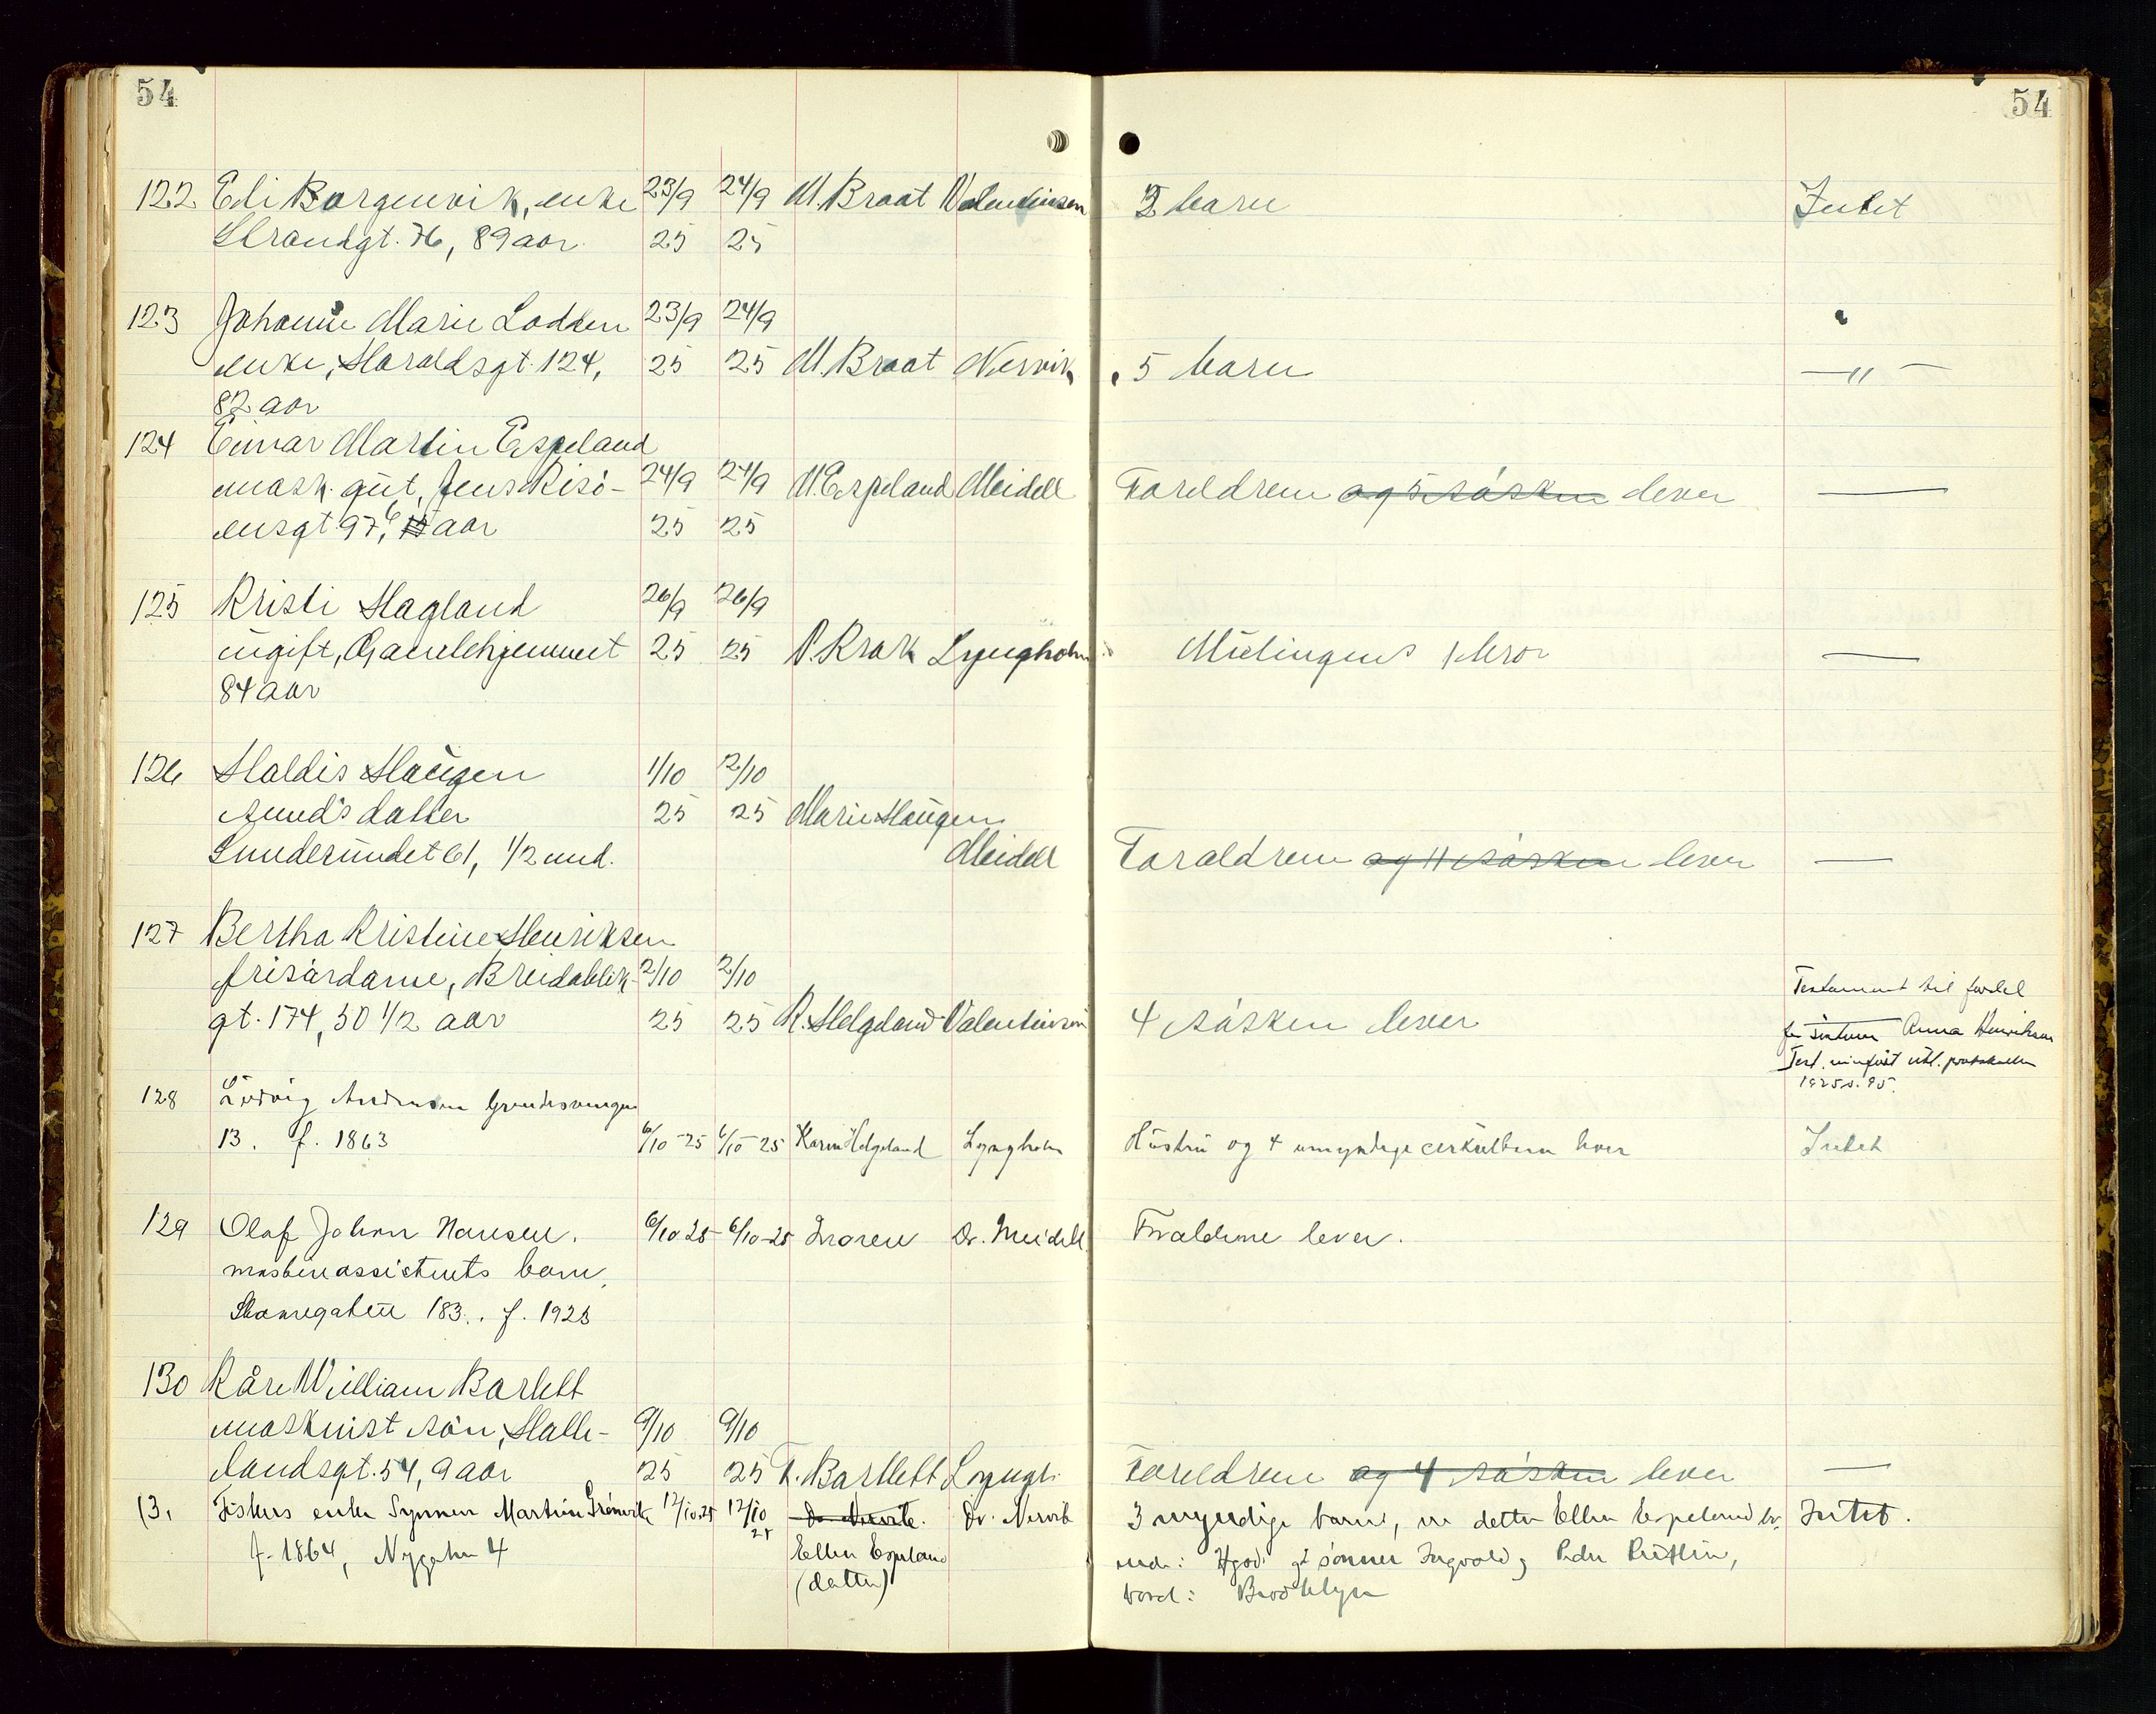 54
54
122 Eli Borgenvik, enke 23/9 24/9 M. Braat Valentinsen 2 barn Intet
Strandgt. 76, 89 aar. 25 25
123 Johanne Marie Lodden 23/9 24/9
enke, Haraldsgt. 124, 25 25 M. Braat Nervik 5 barn —"—
82 aar
124 Einar Martin Espeland
mask. gut, Jens Risö- 24/9 24/9 M. Espeland Meidell Foreldrene og 5 sösken lever —
ensgt 97, 6 aar 25 25
125 Kristi Hagland 26/9 26/9
ugift, Gamlehjemmet 25 25 Lyngholm —
84 aar
126 Haldis Haugen 1/10 2/10
datter 25 25 Marie Haugen
61, 1/2 mnd. Meidell Foraldrene og 11 søsken lever —
127 Bertha Kristine Henriksen
frisørdame, Breidablik- 2/10 2/10 Testament til fordel
gt. 174, 30 1/2 aar 25 25 R. Helgeland Valentinsen 4 søsken lever for søsteren Anna Henriksen
Test. innført utl. protokollen
1925 s. 95.
128 Ludvig Andersen
13. f. 1863 6/10-25 6/10-25 Karen Helgeland Lyngholm Hustru og 4 umyndige lever Intet
129 Olaf Johan Hansen. 6/10 25 6/10-25 Dr. Meidell Foraldrene lever.
maskinassistents barn,
183. f. 1925
130 Kåre William Bartlett
maskinist søn, Halle- 9/10 9/10
landsgt. 54, 9 aar 25 25 T. Bartlett Lyngh. Foreldrene og 4 søsken lever —
13. Fiskers enke Martine 12/10.25 12/10 25 Dr. Nervik. Dr. Nervik 3 myndige barn, datter Ellen Espeland Intet.
f. 1864, 4 Ellen Espeland sønner Ingvald
(datter) Brooklyn